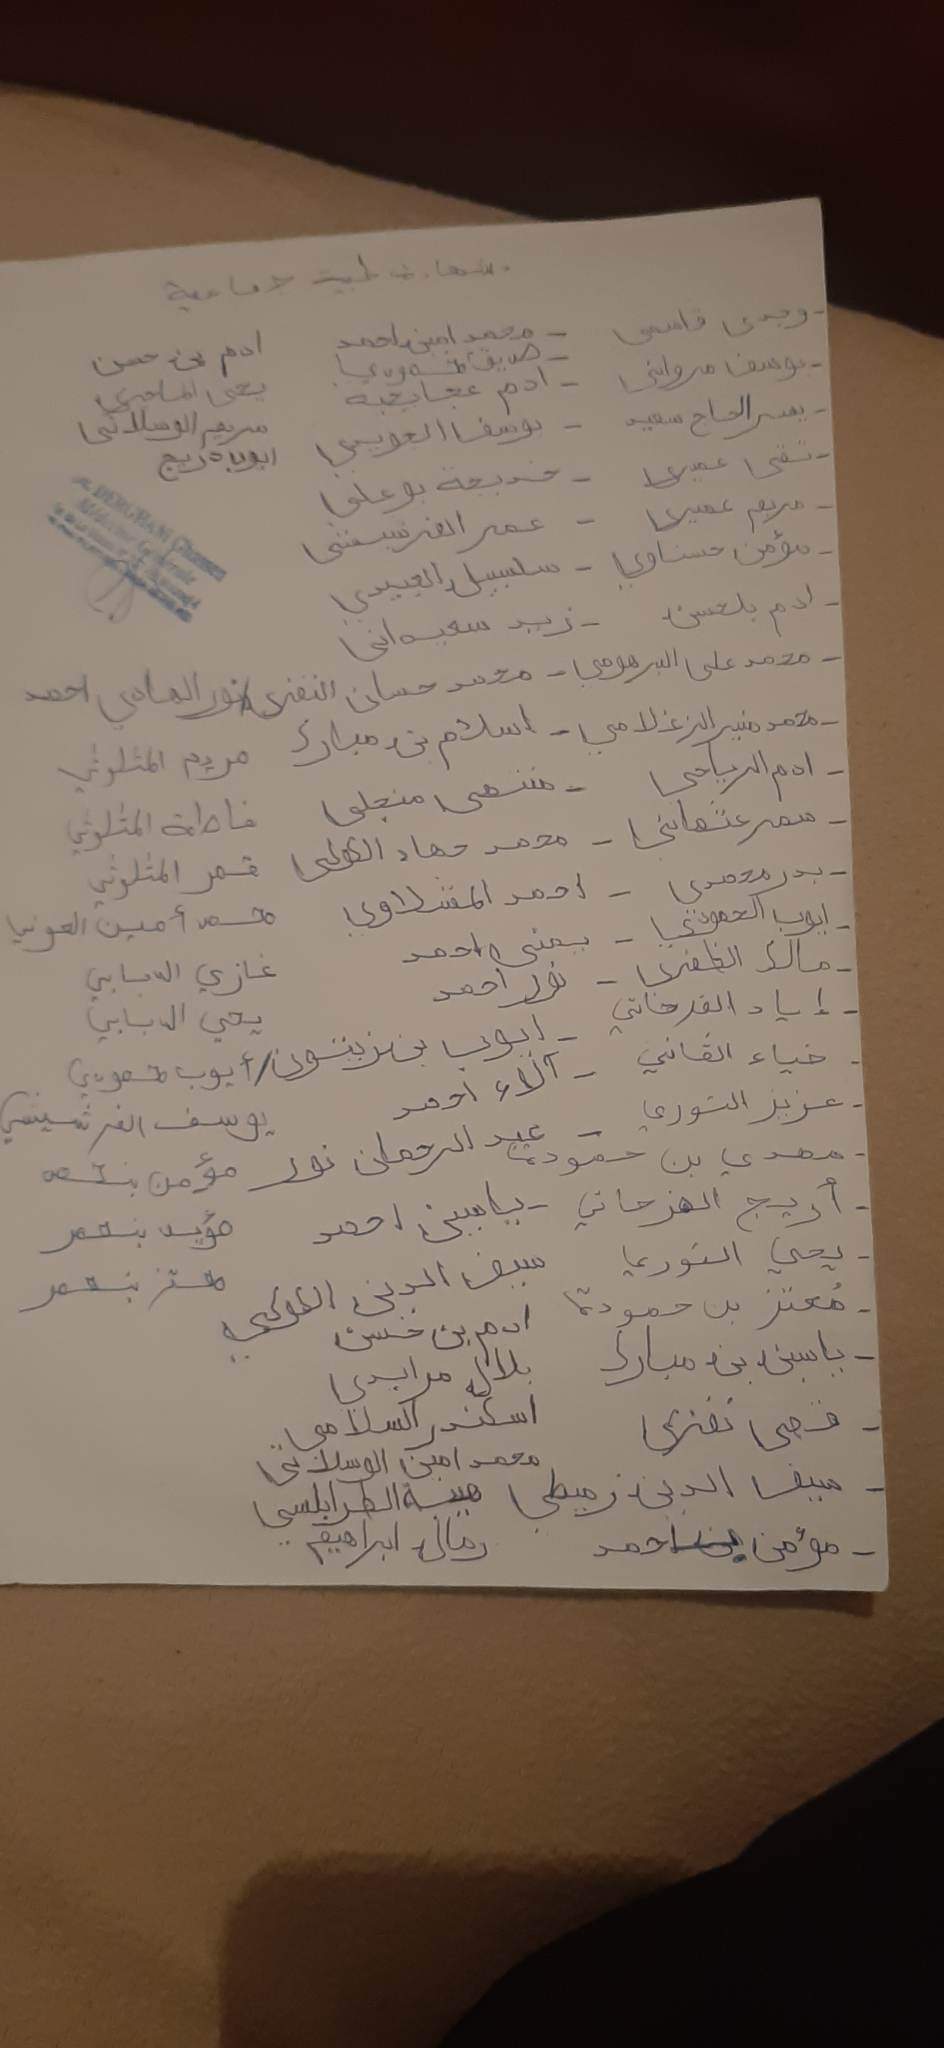 شهادة طبية جماعية
- وجدي قاسمي - محمد امين احمد ادم بن حسن
- يوسف مرواني - صديق
- يسر الحاج سعيد - ادم عجايبية يحي
- تقى عميري - يوسف العويني مريم الوسلاتي
- مريم عميري - خديجة بوعلي
- مؤمن حسناوي - عمر الفرشيشي
- ادم بلحسن - سلسبيل العبيدي
- محمد علي - زيد سعيداني
- محمد منير الزغلامي - محمد حسان النفزي / نور الهادي احمد
- ادم الرياحي - اسلام بن مبارك مريم المثلوثي
- سمر عثماني - منتهى منجلي فاطمة المثلوثي
- بدر محمدي - محمد جهاد قمر المثلوثي
- ايوب - احمد محمد أمين
- مالك - يمنى احمد غازي الدبابي
- إياد الفرحاتي - نور احمد يحي الدبابي
- ضياء القاني - ايوب بن زيتون / أيوب
- عزيز النوري - آلاء احمد يوسف الفرشيشي
- مهدي بن حمودة - عبد الرحمان نور مؤمن
- أريج الفرحاتي - ياسين احمد مؤيد بنعمر
- يحي النوري سيف الدين معتز بنعمر
- مُعتز بن حمودة ادم بن حسن
- ياسين بن مبارك بلال مرايدي
- قصي نفزي اسكندر السلامي
محمد امين الوسلاتي
- سيف الدين زميطي الطرابلسي
- مؤمن احمد رمال ابراهيم
DERGHAM